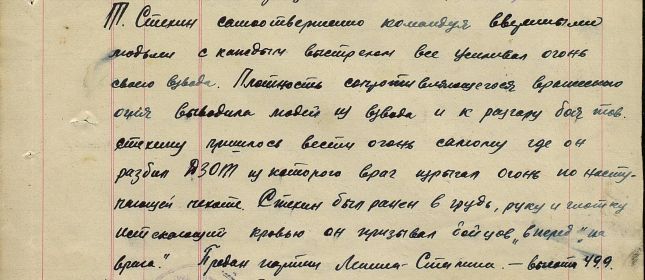 Т. Стекин самоотверженно командуя вверенными
людьми с каждым выстрелом все усиливал огонь
своего взвода. Плотность сопротивляющегося вражеского
огня выводила людей из взвода и к разгару боя тов.
Стекину пришлось вести огонь самому где он
разбил ДЗОТ из которого враг изрыгал огонь по насту-
пающей пехоте. Стекин был ранен в грудь, руку и глотку
истекающий кровью он призывал бойцов "вперед" "на
врага". Предан партии Ленина-Сталина. — высота 49,9.